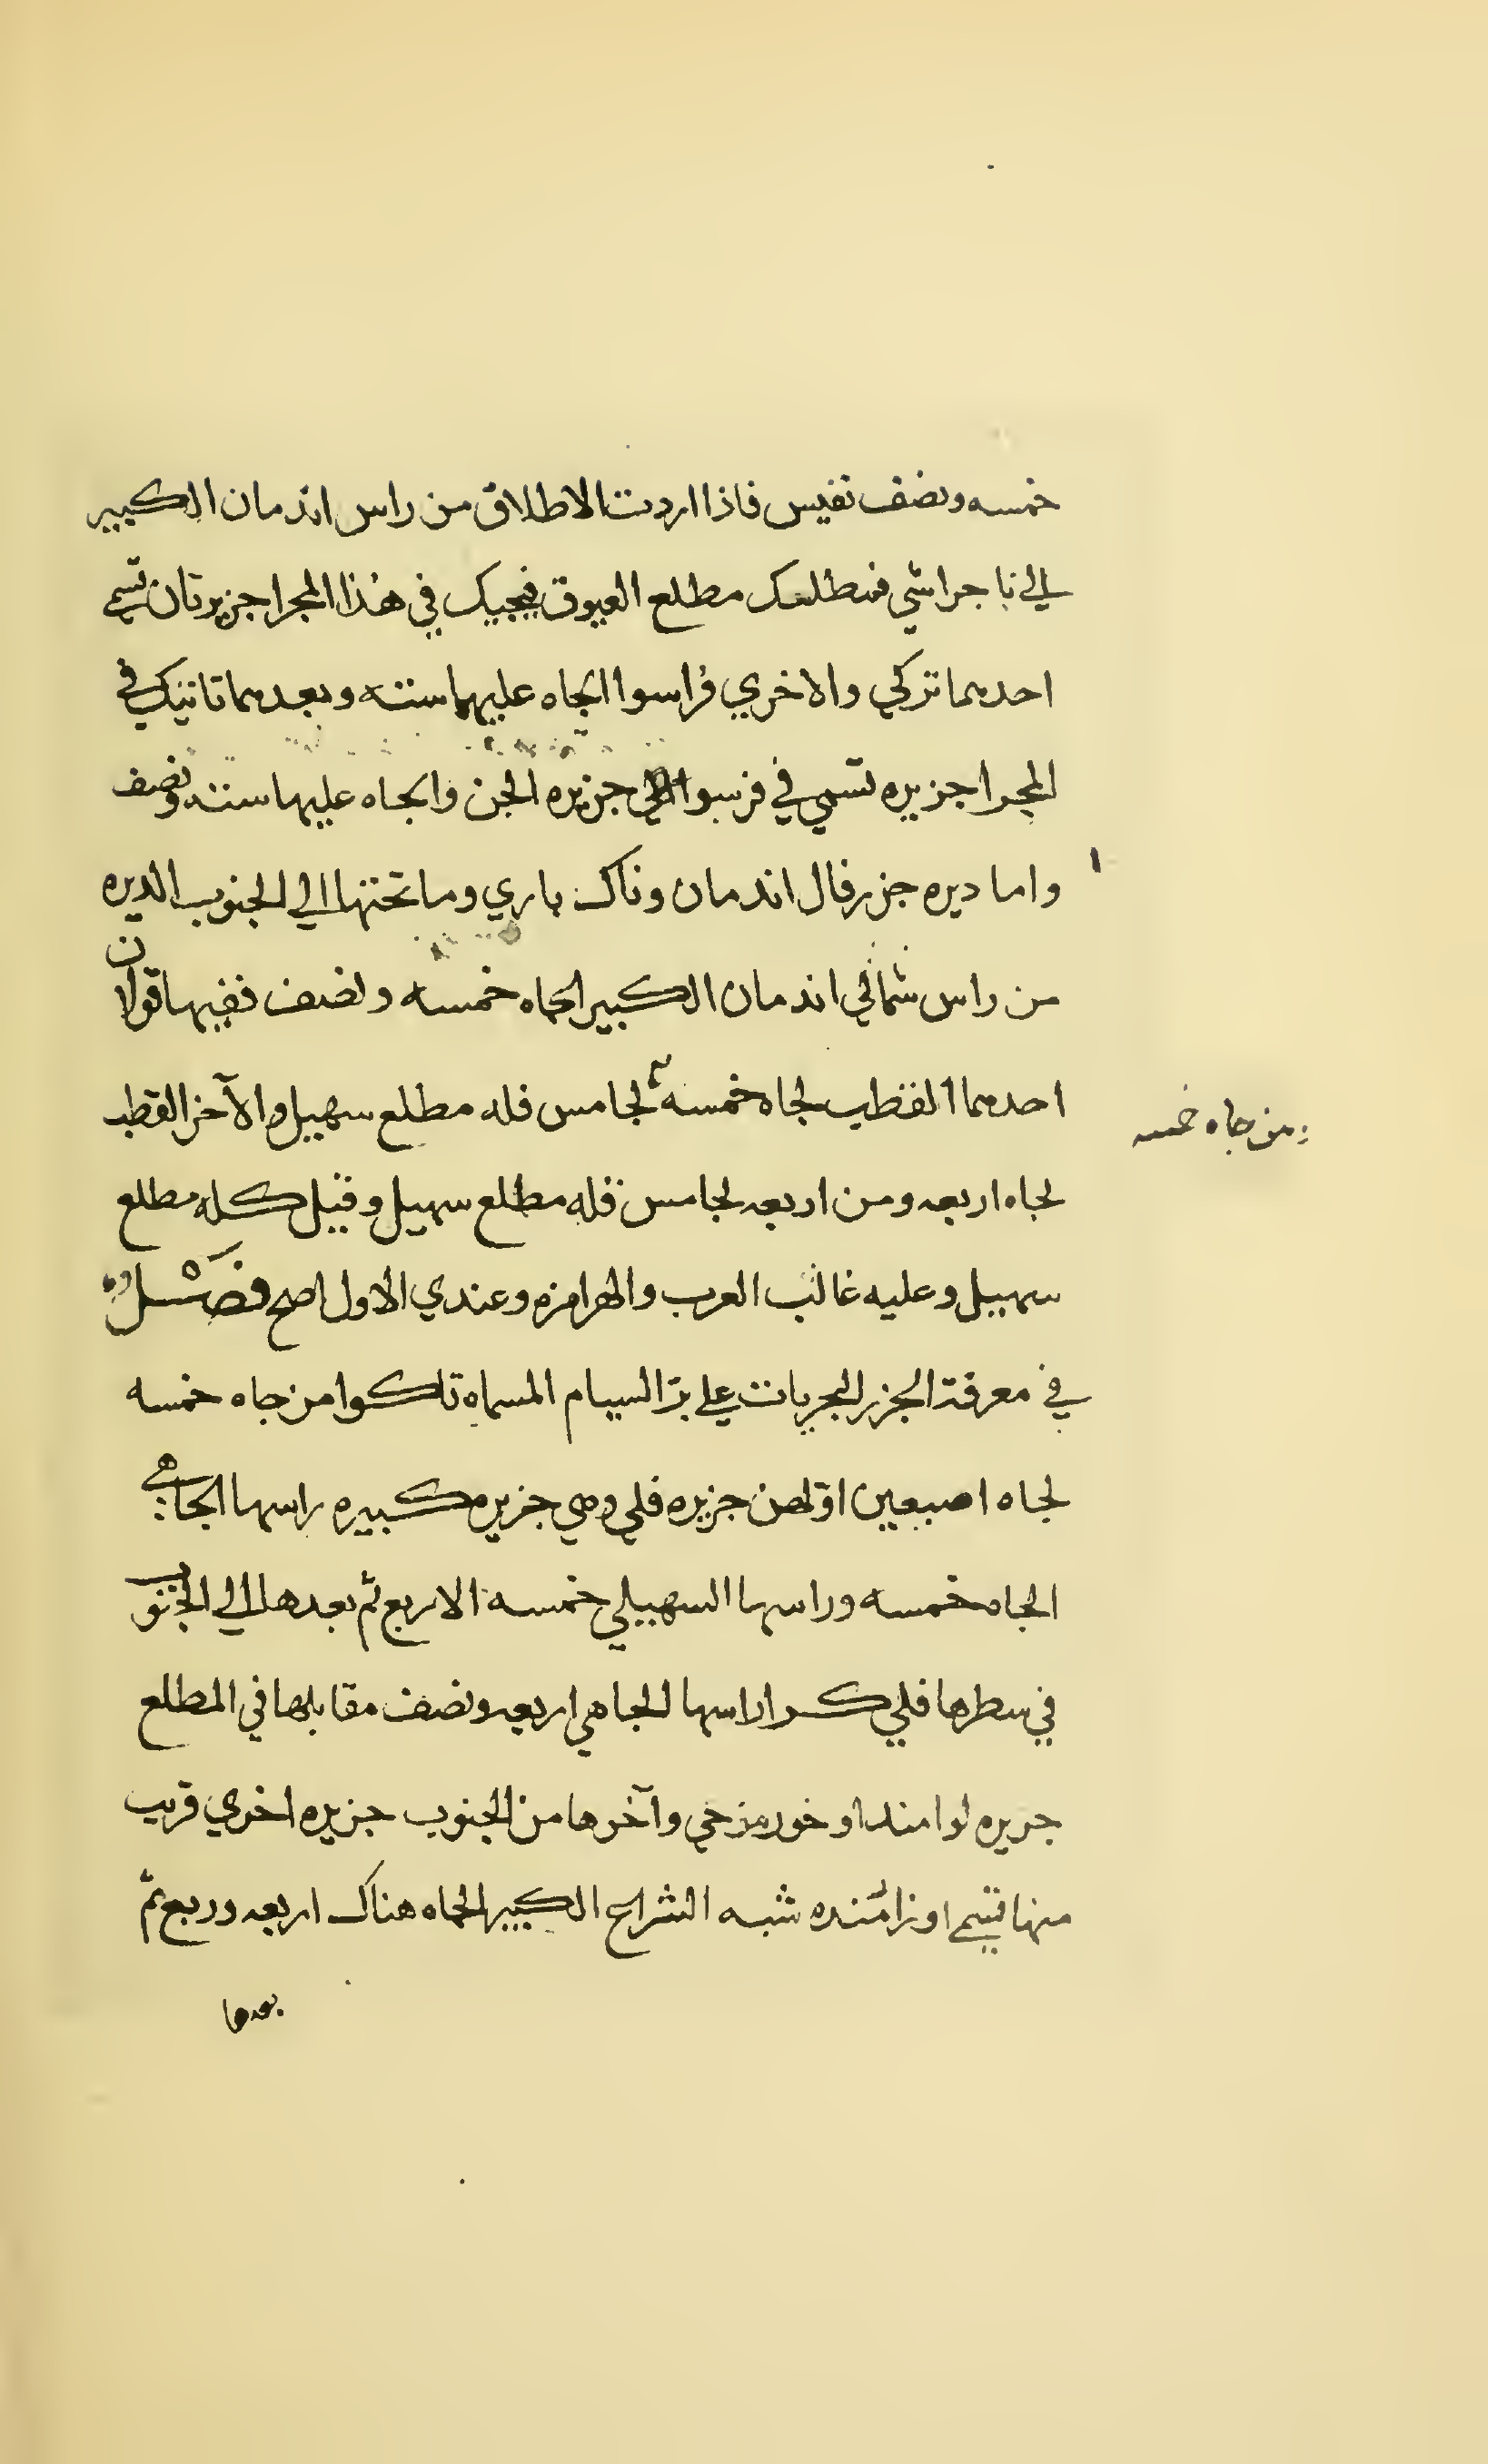 خمسه ونصف نفيس فاذا اردت الاطلاق من راس اندمان الكبير
الي نا جراشي فمطلعك مطلع العيوق فيجيك في هذا المجرا جزيرتان تسمي
احدهما تركي والاخري فراسوا الجاه عليهما سته وبعدهما تاتيك في
المجرا جزيره تسمي في فرسوا جزيره الجن والجاه عليها سته ونصف
واما ديره جزر فال اندمان وناك باري وما تحتها الي الجنوب الديره
من راس شمالي اندمان الكبير الجاه خمسه ونصف ففيها قولان
احدهما القطب لجاه خمسه ثم لجامس فله مطلع سهيل والآخر القطب
من جاه خمسه
لجاه اربعه ومن اربعه لجامس فله مطلع سهيل وقيل كله مطلع
سهيل وعليه غالب العرب والهرامزه وعندي الاول اصح فصل
في معرفة الجزر البحريات علي بر السيام المسماه تاكوا من جاه خمسه
لجاه اصبعين اولهن جزيره فلي وهي جزيره كبيره راسها الجاهي
الجاه خمسه وراسها السهيلي خمسه الا ربع ثم بعدها الي الجنوب
في سطرها فلي كرا راسها الجاهي اربعه ونصف مقابلها في المطلع
جريره لوامند او خور مرخي وآخرها من الجنوب جزيره اخري قريب
منها تسمي اوزامنده شبه الشراع الكبير الجاه هناك اربعه وربع ثم
بعدها